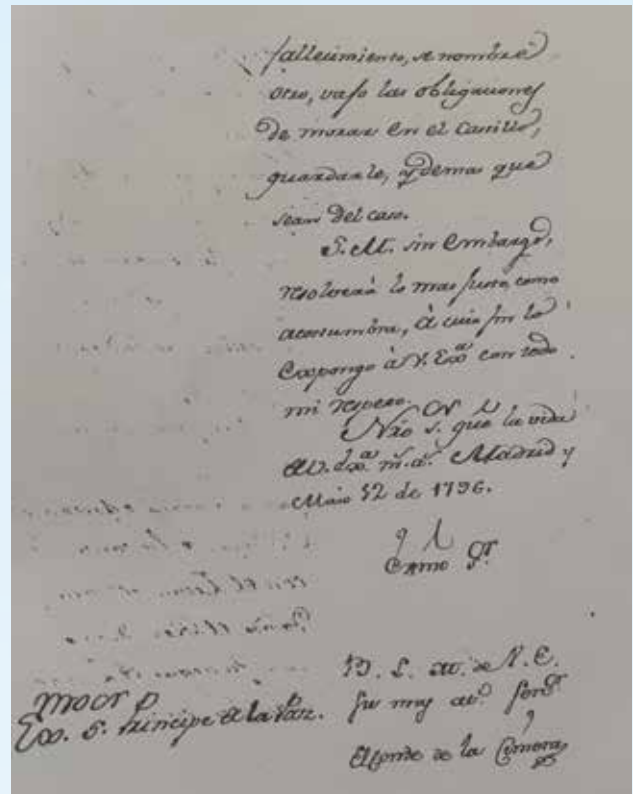 fallecimiento, se nombre
otro, vaxo las obligaciones
de morar en el Castillo,
guardarle, y demas que
sean del caso.
S. M. sin embargo,
resolverá lo mas justo, como
acostumbra, á cuio fin lo
Expongo á V. Exª con todo
mi respeto.
Nro Sʳ gᵘᵉ la vida
de V. Exª mˢ aˢ Madrid y
Maio 12 de 1796.
Exmo Sʳ
B. L. M. de V. E.
su mas atº servʳ
El Conde de la Cimera
Exmo Sʳ Principe de la Paz.